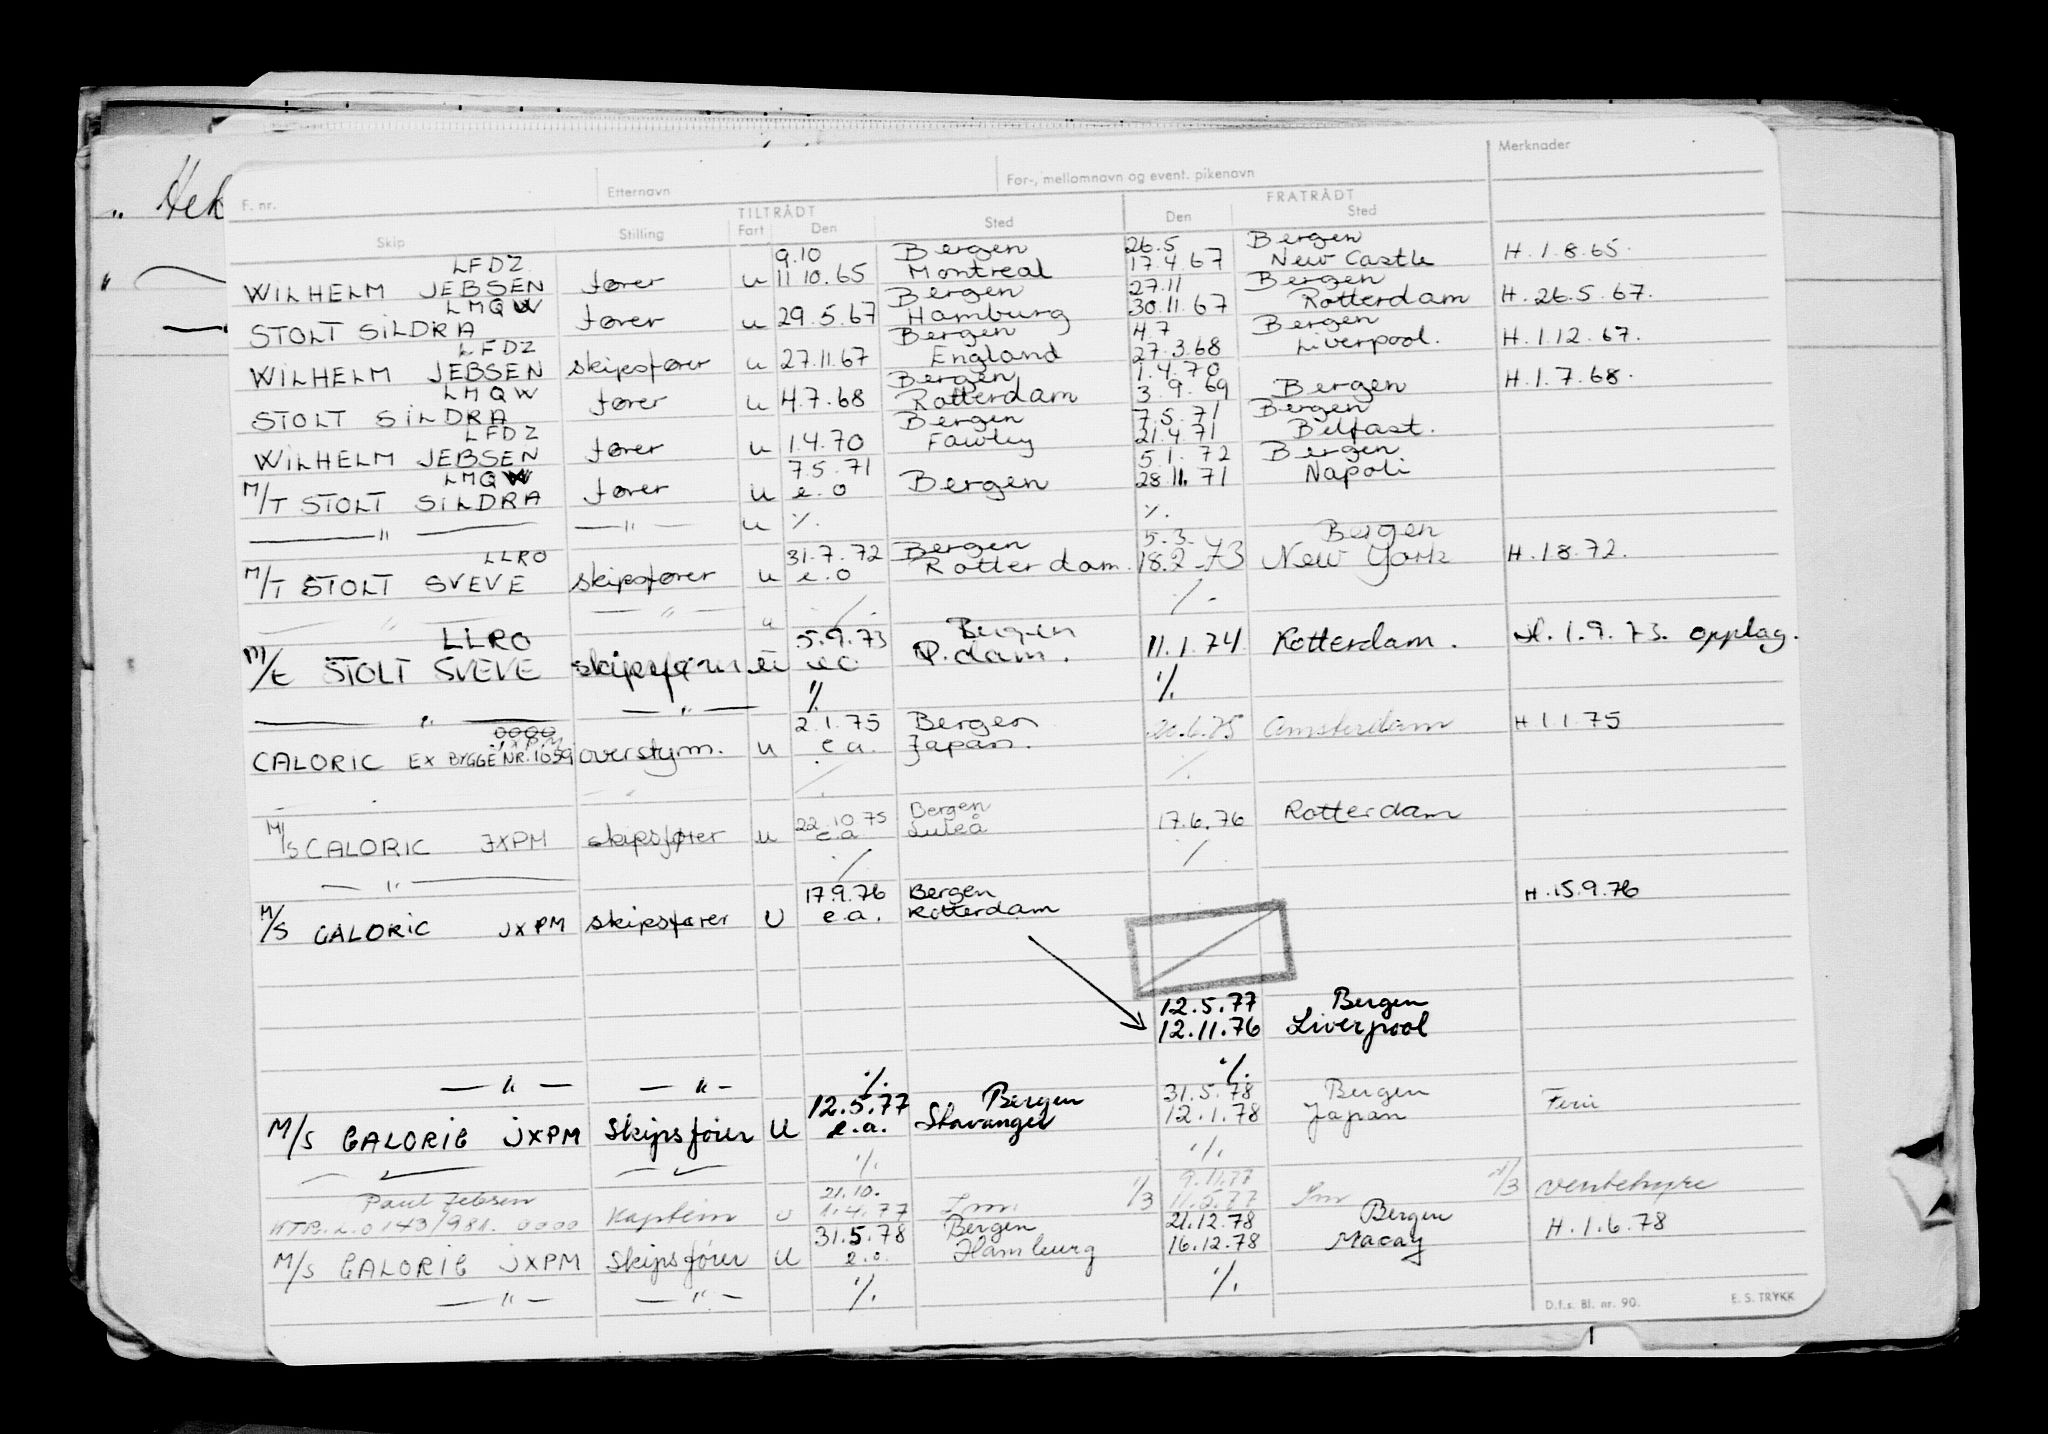 " Hek
F. nr. Etternavn Før-, mellomnavn og event. pikenavn Merknader
TILTRÅDT FRATRÅDT
Skip Stilling Fart Den Sted Den Sted
LFDZ 9.10 Bergen 26.5 Bergen
WILHELM JEBSEN fører u 11 10.65 Montreal 17.4 67 New Castle H.1.8.65.
LMQW Bergen 27.11 Bergen
STOLT SILDRA fører u 29.5.67 Hamburg 30.11.67 Rotterdam H.26.5.67.
LFDZ Bergen 4.7 Bergen
WILHELM JEBSEN skipsfører u 27.11.67 England 27.3.68 Liverpool. H.1.12.67.
LMQW Bergen 1.4.70
STOLT SILDRA fører u 4.7.68 Rotterdam 3.9.69 Bergen H.1.7.68.
LFDZ Bergen 7.5.71 Bergen
WILHELM JEBSEN fører u 1.4.70 Fawley 21.4.71 Belfast.
LMQW 7.5.71 5.1.72 Bergen
M/T STOLT SILDRA fører u e.o Bergen 28.11.71 Napoli
— " — — " — u ·/. ·/.
LLRO 31.7.72 Bergen 5.3. Bergen
M/T STOLT SVEVE skipsfører u e.o Rotterdam. 18.2-73 New York H.1.8.72.
— " — — " — u ·/. ·/.
LLRO 5.9.73 Bergen
M/T STOLT SVEVE skipsfører u e.o R.dam. 11.1.74 Rotterdam. H.1.9.73. opplag.
— " — — " — ·/. ·/.
0000
JXPM 2.1.75 Bergen
CALORIC EX BYGGE NR.1059 overstyrm. u e.a. Japan. 20.6.75 Amsterdam H.1.1.75
" ·/. ·/.
22.10 75 Bergen
M/S CALORIC JXPM skipsfører u e.a Luleå 17.6.76 Rotterdam
— " — ·/. ·/.
17.9.76 Bergen
M/S CALORIC JXPM skipsfører U e.a. Rotterdam H.15.9.76
12.5.77 Bergen
12.11.76 Liverpool
— " — — " — ·/. ·/.
12.5.77 Bergen 31.5.78 Bergen
M/S CALORIC JXPM Skipsfører U e.a. Stavanger 12.1.78 Japan Ferie
·/. ·/.
Paul Jebsen 21.10. 1/3 9.11.77 1/3
KTR.L.0143/981. 0000 Kaptein u 1.4.77 Lm 11.5.77 Lm ventehyre
31.5.78 Bergen 21.12.78 Bergen
M/S CALORIC JXPM Skipsfører U e.o. Hamburg 16.12.78 Macay H.1.6.78
— " — — " — ·/. ·/.
D.f.s. Bl. nr. 90. E. S. TRYKK